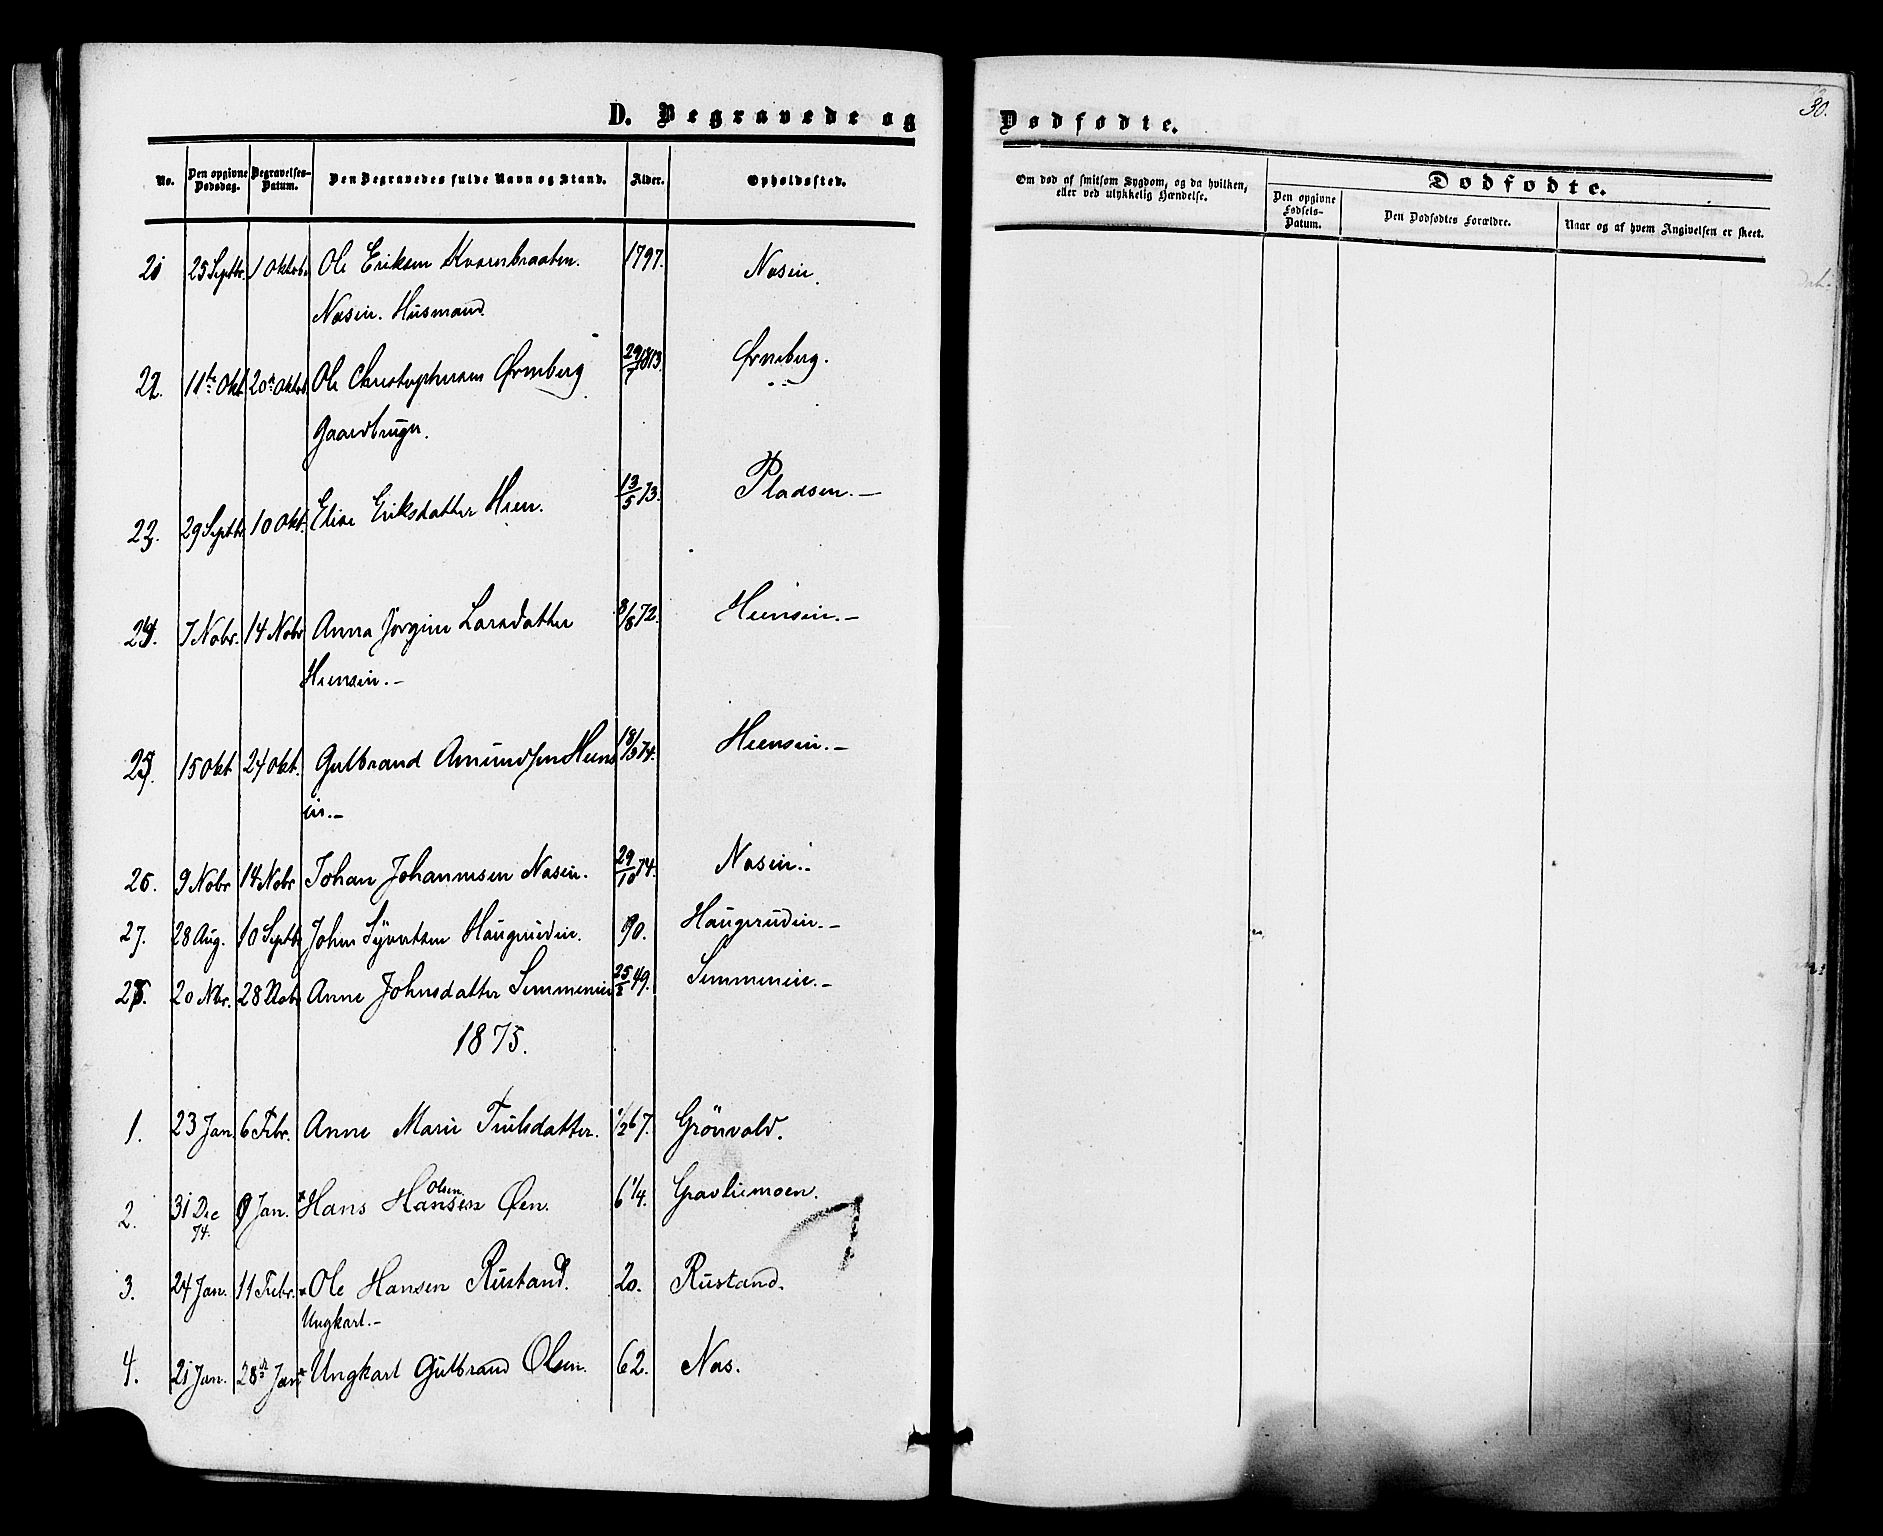 D. Begravede og
No. Den opgivne Dødsdag. Begravelses-Datum. Den Begravedes fulde Navn og Stand. Alder. Opholdssted.
21 25 Septbr. 1 Oktobr Ole Eriksen Kvernbraaten. 1797. Næsin.
Næsin. Husmand.
22. 11te Okt. 20de Oktobr Ole Christophersen Ørneberg 29/7 1813. Ørneberg.
Gaardbruger.
23. 29 Septbr. 10 Okt. Elise Eriksdatter Hien. 13/5 73. Pladsen.-
24. 7 Nobr. 14 Nobr Anna Jörgine Larsdatter 8/8 72. Hiensin.-
Hiensin.-
25. 15 Okt. 24 Okt. Gulbrand Amundsen Hiens 18/3 74. Hiensin.-
in.-
26. 9 Nobr 14 Nobr Johan Johannesen Næsin. 29/10 74. Næsin.-
27. 28 Aug. 10 Septbr John Syvertsen Haugerudin. 90. Haugerudin.-
28. 20 Nbr. 28 Nobr Anne Johnsdatter Semmenin 25/2 49. Semmenin.-
1875.
1. 23 Jan. 6 Febr. Anne Marie Trulsdatter. 1/2 67. Grönvold.
2. 31 Dec 74. 9 Jan. * Hans Hansen Olsen Øen. 6 1/4. Gravliemoen.
3. 24 Jan. 11 Febr. * Ole Hansen Rustand. 20. Rustand.
Ungkarl.-
4. 21 Jan. 28de Jan. * Ungkarl Gulbrand Olsen. 62. Næs.
Dødfødte.
30.
Om død af smitsom Sygdom, og da hvilken, eller ved ulykkelig Hændelse.
Dødfødte.
Den opgivne Fødsels-Datum. Den Dødfødtes Forældre. Naar og af hvem Angivelsen er skeet.